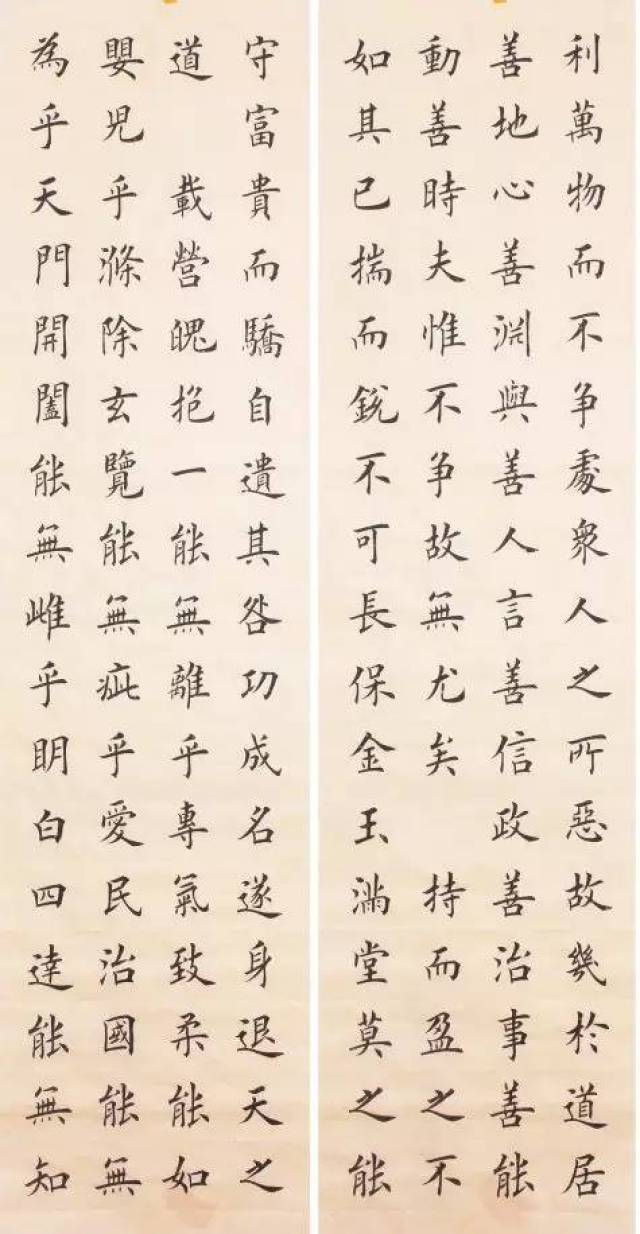 利萬物而不争處衆人之所惡故幾於道居
善地心善渊與善人言善信政善治事善能
動善時夫惟不争故無尤矣 持而盈之不
如其已揣而銳不可長保金玉滿堂莫之能
守富貴而驕自遺其咎功成名遂身退天之
道 載營魄抱一能無離乎專氣致柔能如
嬰兒乎滌除玄覽能無疵乎愛民治國能無
為乎天門開闔能無雌乎明白四達能無知